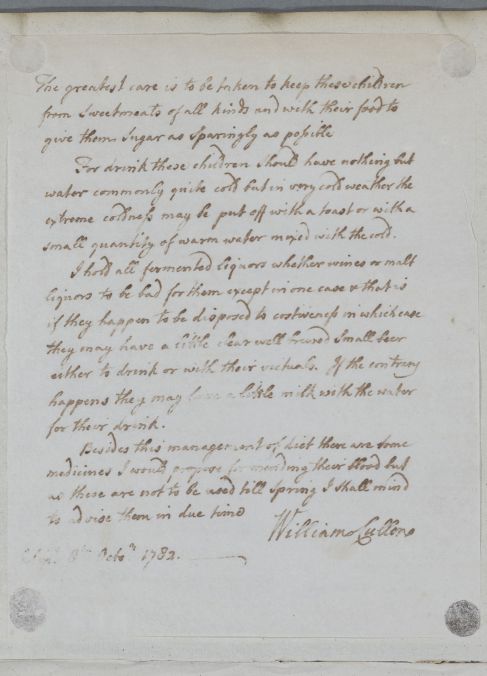 The greatest care is to be taken to keep these children
from Sweetmeats of all kinds and with their food to
give them Sugar as sparingly as possible
For drink these children should have nothing but
water commonly quite cold but in very cold weather the
extreme coldness may be put off with a toast or with a
small quantity of warm water mixed with the cold.
I hold all fermented liquors whether wines or malt
liquors to be bad for them except in one case & that is
if they happen to be disposed to costiveness in which case
they may have a little clear well brewed Small beer
either to drink or with their victuals. If the contrary
happens they may have a little milk with the water
for their drink.
Besides this management of diet there are some
medicines I would propose for mending their blood but
as these are not to be used till Spring I shall mind
to advise them in due time
William Cullen
Edinr 8th Octor 1782.